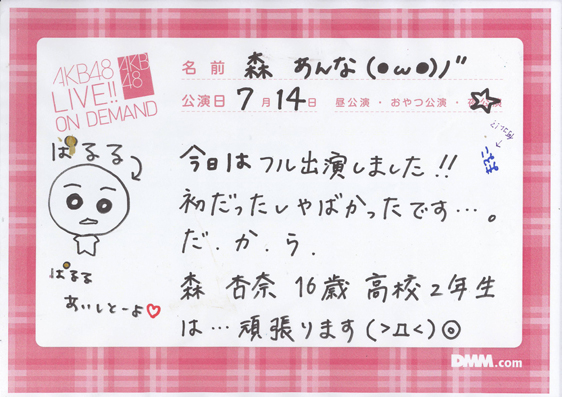 AKB48
LIVE!!
ON DEMAND
AKB
48
名前 森 あんな (●ω●)ノ"
公演日 7月14日 昼公演・おやつ公演・夜公演
ぱるる
今日はフル出演しました!!
初だったしやばかったです…。
だ.か.ら.
森 杏奈 16歳 高校2年生
は…頑張ります(>д<)◎
ぱるる
あいしとーよ♡
DMM.com